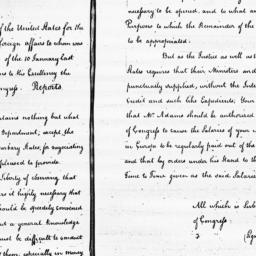 of the United States for the
foreign affairs to whom was
of the 10 January last
to his Excellency the
Congress. Reports
contains nothing but what
Department, except the
Barbary States, for negociating
pleased to provide.
Liberty of observing, that
it highly necessary that
should be speedily convened
but a general Knowledge
must be difficult to conduct
them, especially in Money
necessary to be opened, and to what am
Purposes to which the Remainder of the
to be appropriated.
But as the Justice as well as t
States requires that their Ministers and
punctually supplied, without the Inde
Credit and such like Expedients; Your
that Mr Adams should be authorised
of Congress to cause the Salaries of your
in Europe to be regularly paid out of the
and that by orders under his Hand to th
Time to Time given as the said Salaries
All which is Sub
of Congress